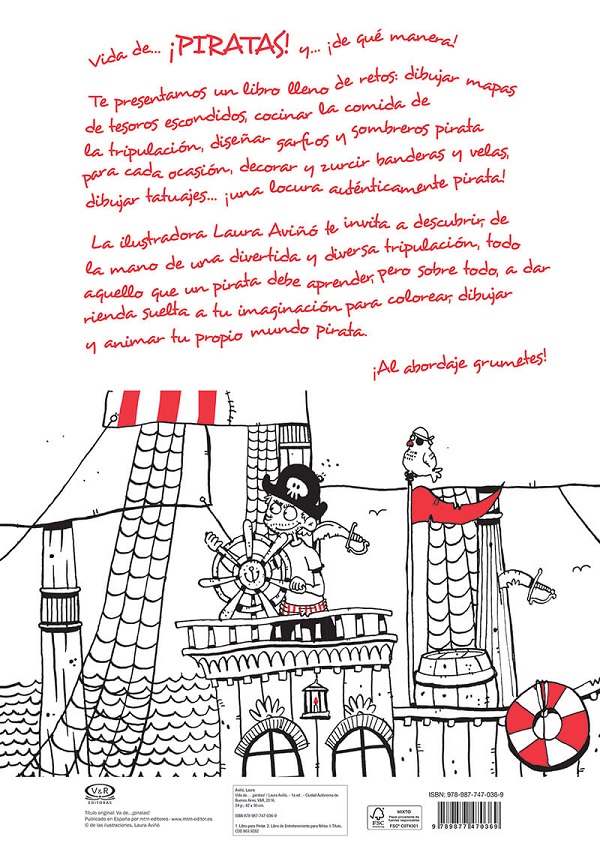 Vida de... ¡PIRATAS! y... ¡de qué manera!
Te presentamos un libro lleno de retos: dibujar mapas
de tesoros escondidos, cocinar la comida de
la tripulación, diseñar garfios y sombreros pirata
para cada ocasión, decorar y zurcir banderas y velas,
dibujar tatuajes... ¡una locura auténticamente pirata!
La ilustradora Laura Aviñó te invita a descubrir, de
la mano de una divertida y diversa tripulación, todo
aquello que un pirata debe aprender, pero sobre todo, a dar
rienda suelta a tu imaginación para colorear, dibujar
y animar tu propio mundo pirata.
¡Al abordaje grumetes!
V&R
EDITORAS
Título original: Va de... ¡piratas!
Publicado en España por mtm editores - www.mtm-editor.es
© de las ilustraciones, Laura Aviñó
Aviñó, Laura
Vida de... ¡piratas! / Laura Aviñó. - 1a ed. - Ciudad Autónoma de
Buenos Aires: V&R, 2016.
24 p.; 42 x 30 cm.
ISBN 978-987-747-036-9
1. Libro para Pintar. 2. Libro de Entretenimiento para Niños. I. Título.
CDD 863.9282
FSC
www.fsc.org
MIXTO
Papel procedente de
fuentes responsables
FSC® C074301
ISBN: 978-987-747-036-9
9 789877 470369